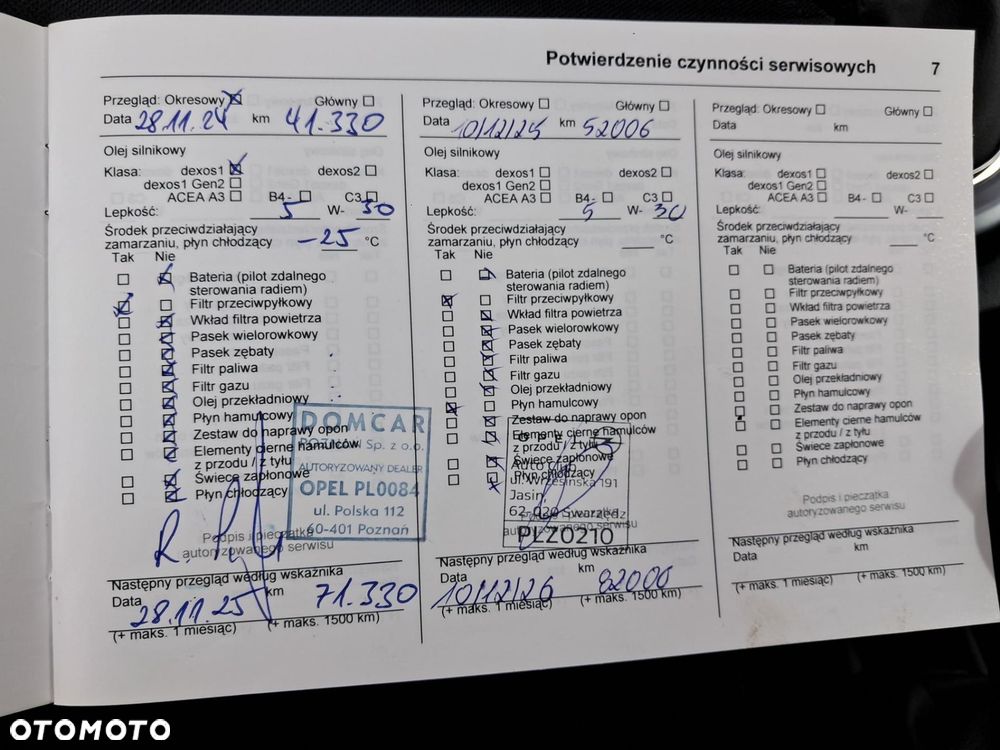 Potwierdzenie czynności serwisowych 7
Przegląd: Okresowy Główny
Data 28.11.24 km 41.330
Olej silnikowy
Klasa: dexos1 dexos2
dexos1 Gen2
ACEA A3 B4- C3
Lepkość: 5 W- 30
Środek przeciwdziałający
zamarzaniu, płyn chłodzący -25 °C
Tak Nie
Bateria (pilot zdalnego
sterowania radiem)
Filtr przeciwpyłkowy
Wkład filtra powietrza
Pasek wielorowkowy
Pasek zębaty
Filtr paliwa
Filtr gazu
Olej przekładniowy
Płyn hamulcowy
Zestaw do naprawy opon
Elementy cierne hamulców
z przodu / z tyłu
Świece zapłonowe
Płyn chłodzący
DOMCAR
POZNAŃ Sp. z o.o.
AUTORYZOWANY DEALER
OPEL PL0084
ul. Polska 112
60-401 Poznań
Podpis i pieczątka
autoryzowanego serwisu
Następny przegląd według wskaźnika
Data 28.11.25 km 71.330
(+ maks. 1 miesiąc) (+ maks. 1500 km)
Przegląd: Okresowy Główny
Data 10/12/25 km 52006
Olej silnikowy
Klasa: dexos1 dexos2
dexos1 Gen2
ACEA A3 B4- C3
Lepkość: 5 W- 30
Środek przeciwdziałający
zamarzaniu, płyn chłodzący °C
Tak Nie
Bateria (pilot zdalnego
sterowania radiem)
Filtr przeciwpyłkowy
Wkład filtra powietrza
Pasek wielorowkowy
Pasek zębaty
Filtr paliwa
Filtr gazu
Olej przekładniowy
Płyn hamulcowy
Zestaw do naprawy opon
Elementy cierne hamulców
z przodu / z tyłu
Świece zapłonowe
Płyn chłodzący
OPEL
Auto Club
ul. Wrzesińska 191
Jasin,
62-020 Swarzędz
autoryzowanego serwisu
PLZ0210
Następny przegląd według wskaźnika
Data 10/12/26 km 82000
(+ maks. 1 miesiąc) (+ maks. 1500 km)
Przegląd: Okresowy Główny
Data km
Olej silnikowy
Klasa: dexos1 dexos2
dexos1 Gen2
ACEA A3 B4- C3
Lepkość: W-
Środek przeciwdziałający
zamarzaniu, płyn chłodzący °C
Tak Nie
Bateria (pilot zdalnego
sterowania radiem)
Filtr przeciwpyłkowy
Wkład filtra powietrza
Pasek wielorowkowy
Pasek zębaty
Filtr paliwa
Filtr gazu
Olej przekładniowy
Płyn hamulcowy
Zestaw do naprawy opon
Elementy cierne hamulców
z przodu / z tyłu
Świece zapłonowe
Płyn chłodzący
Podpis i pieczątka
autoryzowanego serwisu
Następny przegląd według wskaźnika
Data km
(+ maks. 1 miesiąc) (+ maks. 1500 km)
OTOMOTO